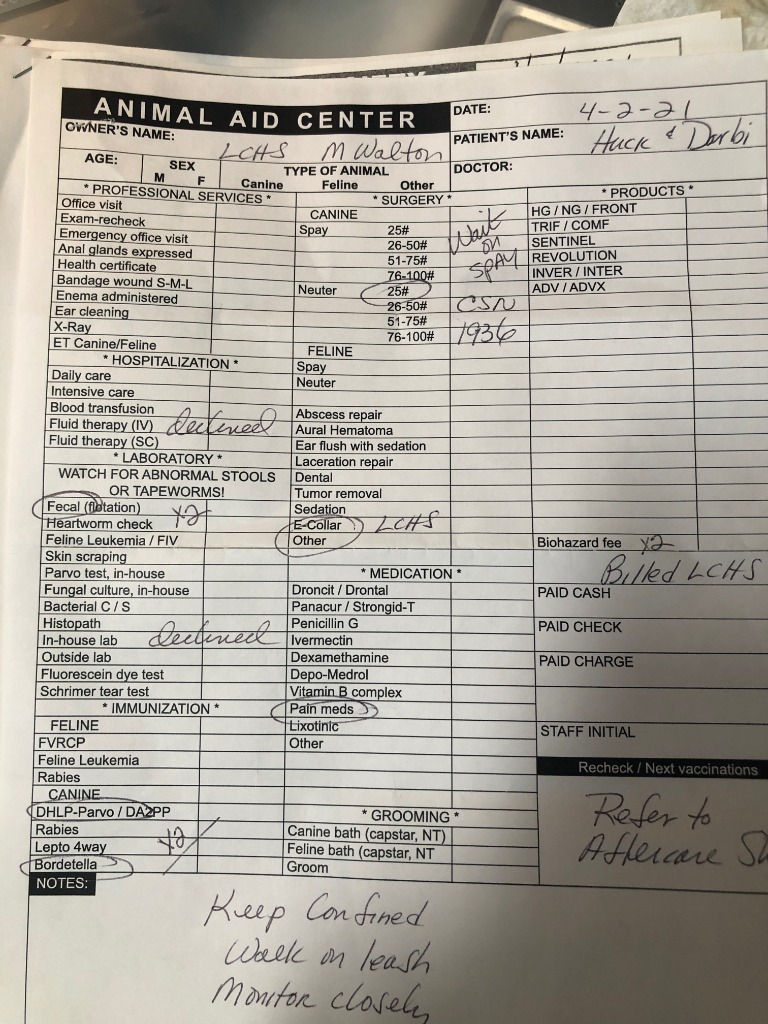 ANIMAL AID CENTER
DATE: 4-2-21
OWNER'S NAME: LCHS M Walton
PATIENT'S NAME: Huck & Darbi
AGE:
SEX
M F
TYPE OF ANIMAL
Canine Feline Other
DOCTOR:
* PROFESSIONAL SERVICES *
Office visit
Exam-recheck
Emergency office visit
Anal glands expressed
Health certificate
Bandage wound S-M-L
Enema administered
Ear cleaning
X-Ray
ET Canine/Feline
* HOSPITALIZATION *
Daily care
Intensive care
Blood transfusion
Fluid therapy (IV) declined
Fluid therapy (SC)
* LABORATORY *
WATCH FOR ABNORMAL STOOLS
OR TAPEWORMS!
Fecal (flotation)
Heartworm check x2
Feline Leukemia / FIV
Skin scraping
Parvo test, in-house
Fungal culture, in-house
Bacterial C / S
Histopath
In-house lab declined
Outside lab
Fluorescein dye test
Schrimer tear test
* IMMUNIZATION *
FELINE
FVRCP
Feline Leukemia
Rabies
CANINE
DHLP-Parvo / DA2PP
Rabies
Lepto 4way x2
Bordetella
* SURGERY *
CANINE
Spay 25#
26-50#
51-75#
76-100#
Wait
on
SPAY
Neuter 25#
26-50#
51-75#
76-100#
CSN
1936
FELINE
Spay
Neuter
Abscess repair
Aural Hematoma
Ear flush with sedation
Laceration repair
Dental
Tumor removal
Sedation
E-Collar LCHS
Other
* MEDICATION *
Droncit / Drontal
Panacur / Strongid-T
Penicillin G
Ivermectin
Dexamethamine
Depo-Medrol
Vitamin B complex
Pain meds
Lixotinic
Other
* GROOMING *
Canine bath (capstar, NT)
Feline bath (capstar, NT
Groom
* PRODUCTS *
HG / NG / FRONT
TRIF / COMF
SENTINEL
REVOLUTION
INVER / INTER
ADV / ADVX
Biohazard fee x2
Billed LCHS
PAID CASH
PAID CHECK
PAID CHARGE
STAFF INITIAL
Recheck / Next vaccinations
Refer to
Aftercare Sh
NOTES:
Keep Confined
Walk on leash
Monitor closely